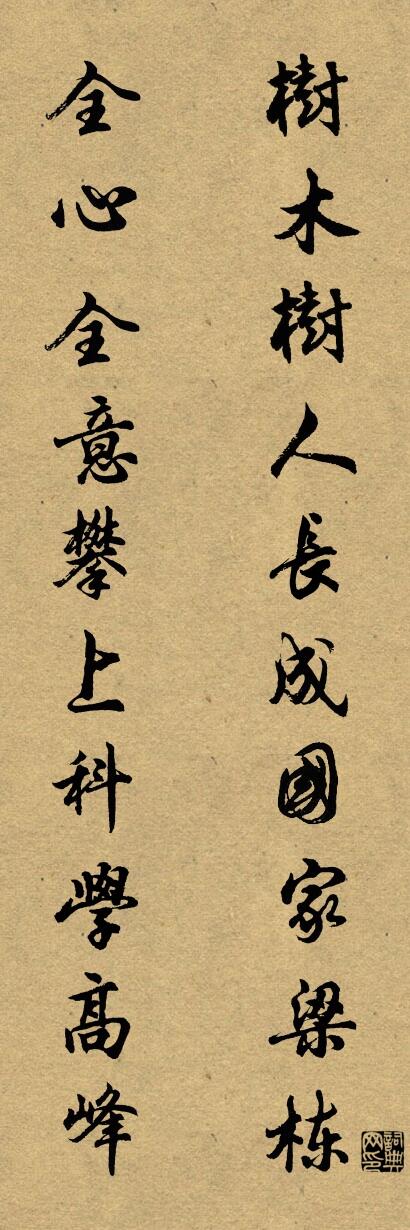 樹木樹人長成國家梁栋
全心全意攀上科學高峰
詞典网印